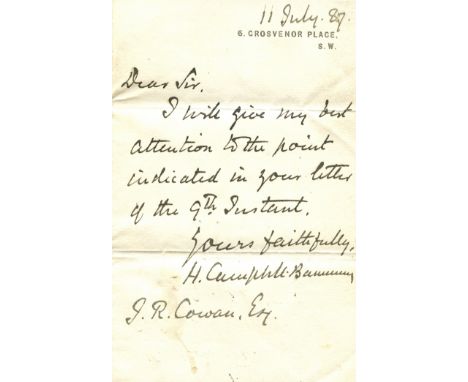 11 July. 87.
6. GROSVENOR PLACE,
S.W.
Dear Sir.
I will give my best
attention to the point
indicated in your letter
of the 9th Instant.
Yours faithfully,
H. Campbell-Bannerman
J. R. Cowan, Esq.